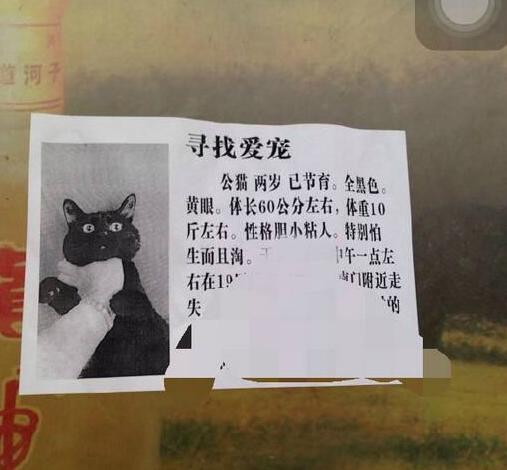 道河子
寻找爱宠
公猫 两岁 已节育。全黑色。
黄眼。体长60公分左右，体重10
斤左右。性格胆小粘人。特别怕
生而且淘。 午一点左
右在19 南门附近走
失 的
神